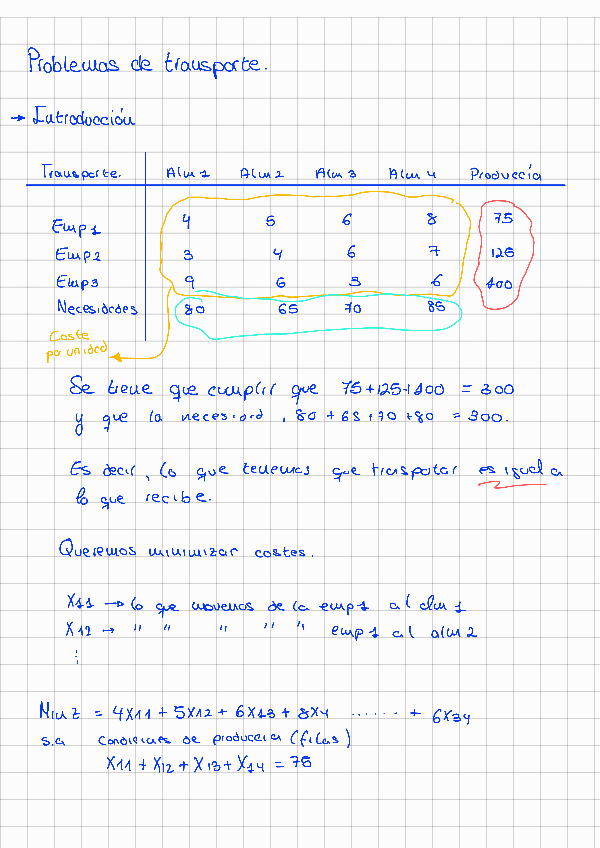 Problemas de transporte.
→ Introducción
Transporte. Alm 1 Alm 2 Alm 3 Alm 4 Producción
Emp 1 4 5 6 8 75
Emp 2 3 4 6 7 125
Emp 3 9 6 3 6 100
Necesidades 80 65 70 85
Coste
por unidad
Se tiene que cumplir que 75+125+100 = 300
y que la necesidad, 80 + 65 + 70 + 80 = 300.
Es decir, lo que tenemos que transportar es igual a
lo que recibe.
Queremos minimizar costes.
X11 → lo que movemos de la emp 1 al alm 1
X12 → " " " " " emp 1 al alm 2
⋮
Min Z = 4X11 + 5X12 + 6X13 + 8X4 ...... + 6X34
s.a condiciones de producción (filas)
X11 + X12 + X13 + X14 = 75